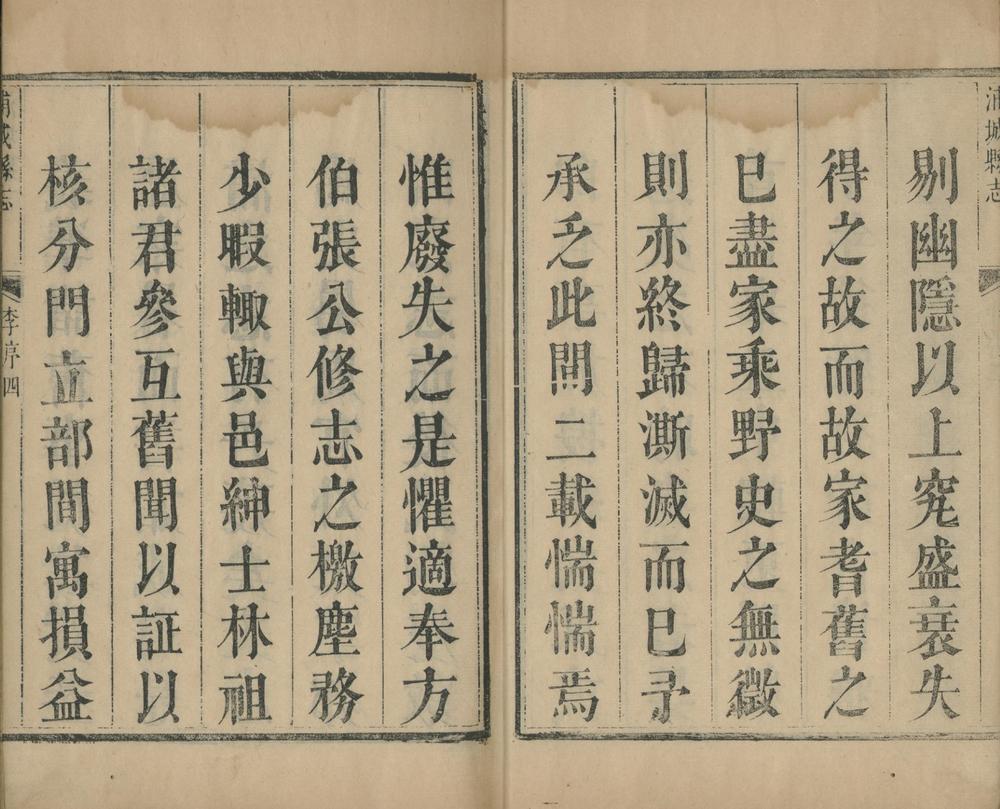 浦城縣志
剔幽隱以上究盛衰失
得之故而故家耆舊之
已盡家乘野史之無徵
則亦終歸澌滅而已予
承乏此間二載惴惴焉
惟廢失之是懼適奉方
伯張公修志之檄塵務
少暇輒與邑紳士林祖
諸君參互舊聞以証以
核分門立部間寓損益
浦城縣志
李序四